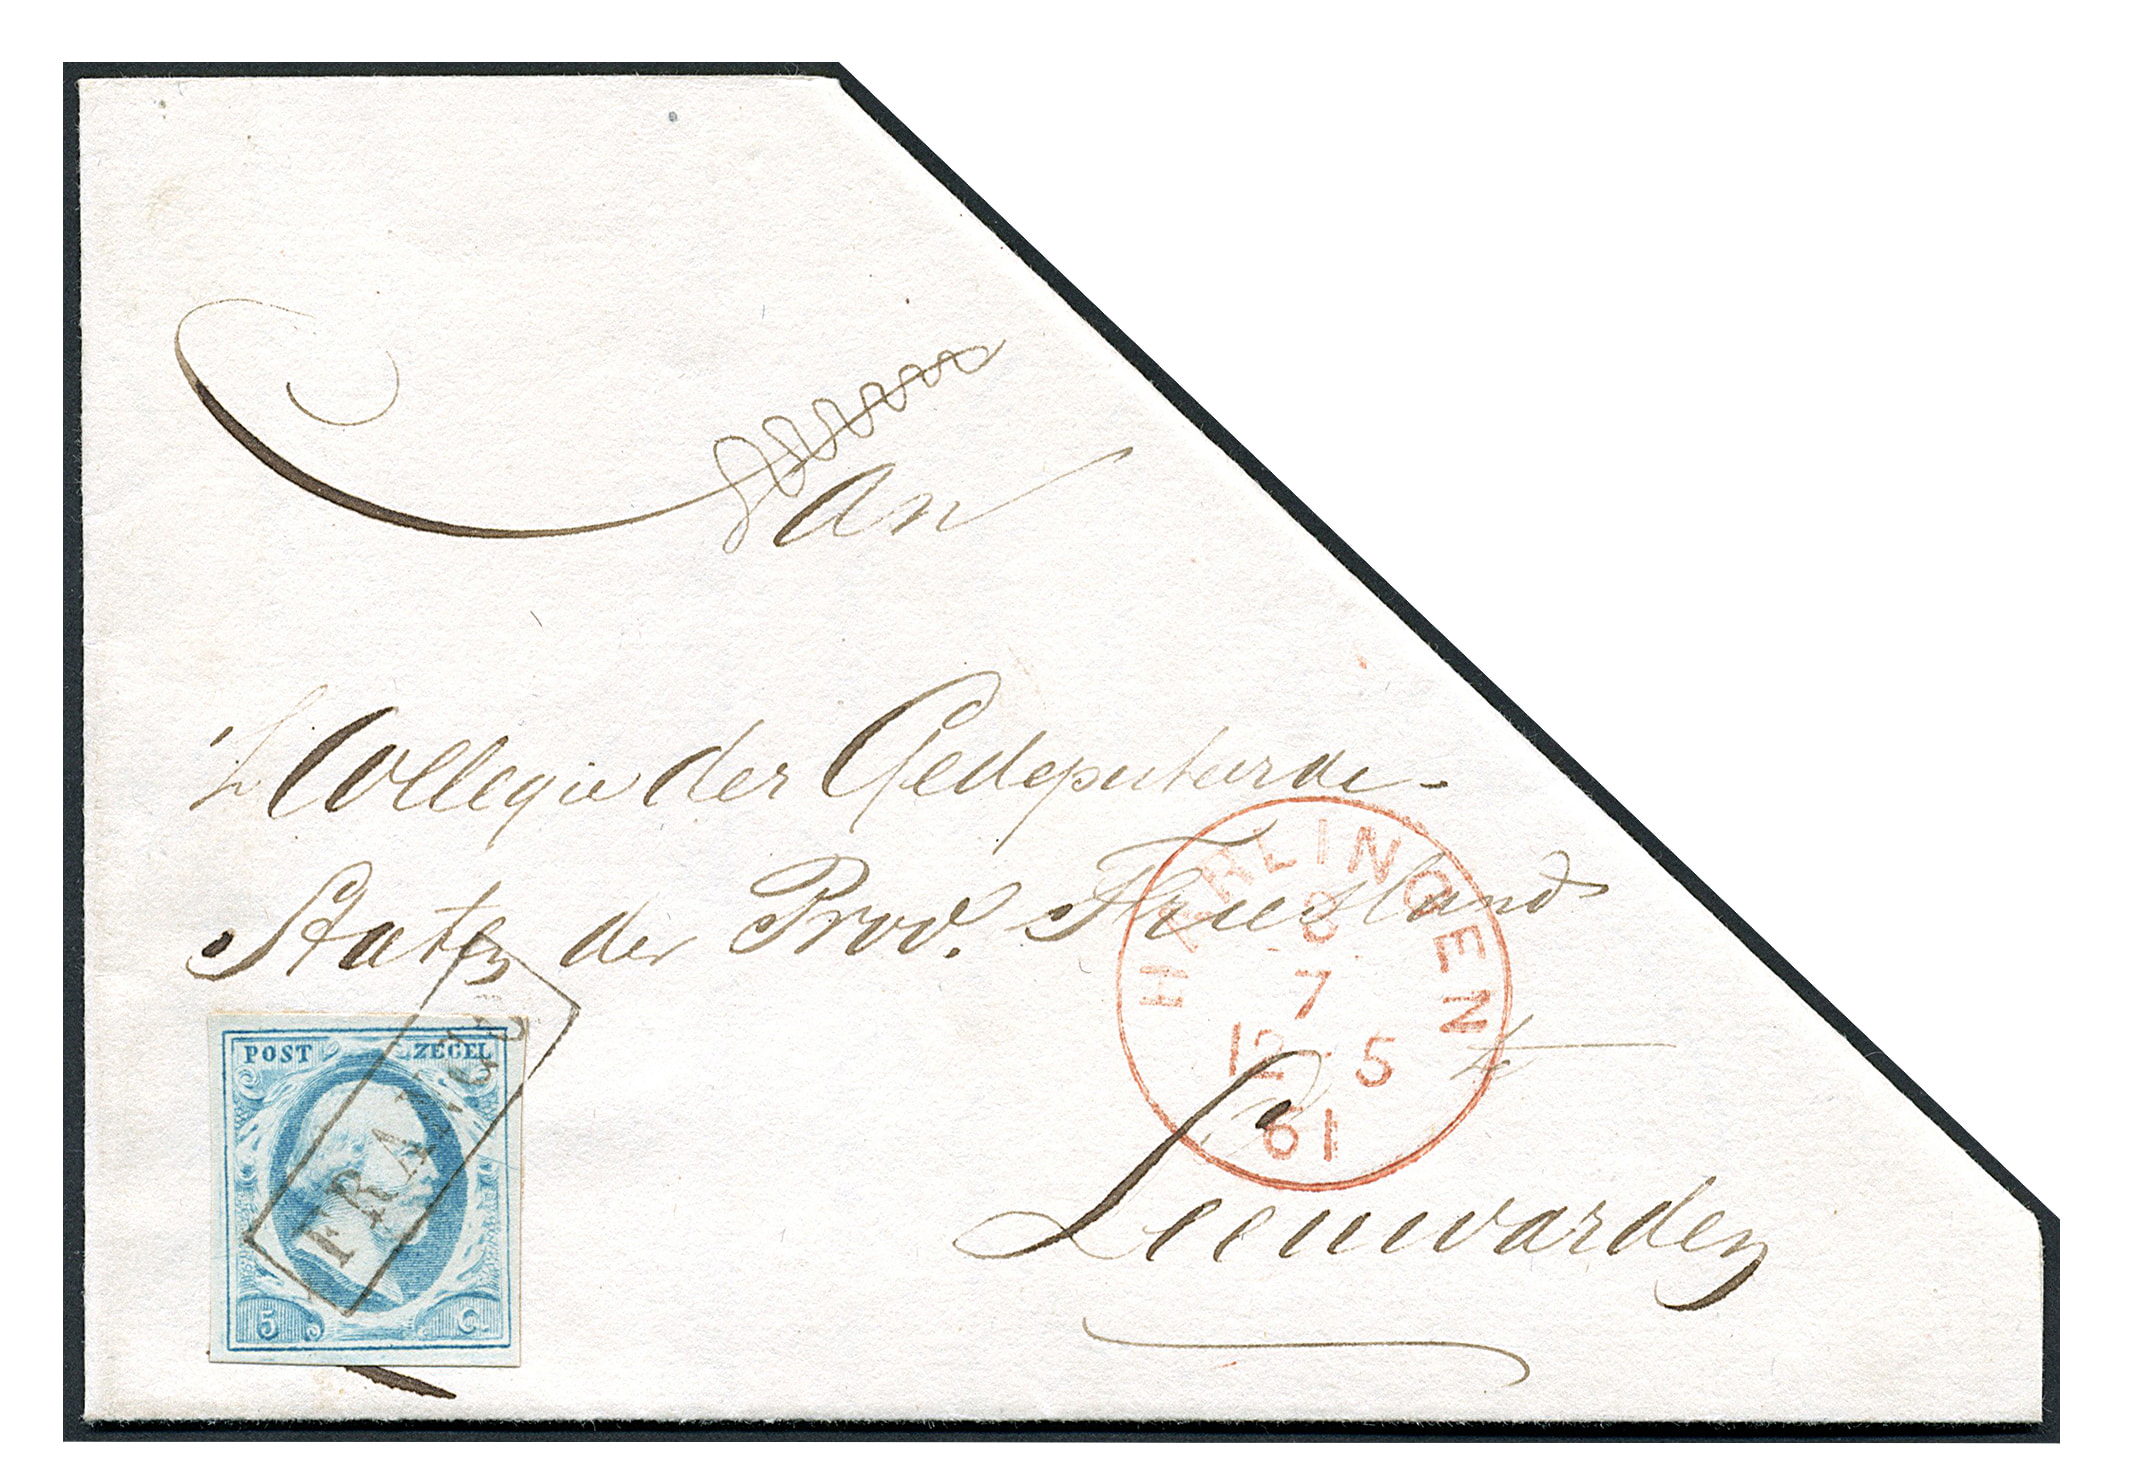 Aan
't Collegie der Gedeputeerde
Staten der Prov. Friesland
te
Leeuwarden
HARLINGEN
8
7
12 5
61
POST ZEGEL
FRANCO
5 C.